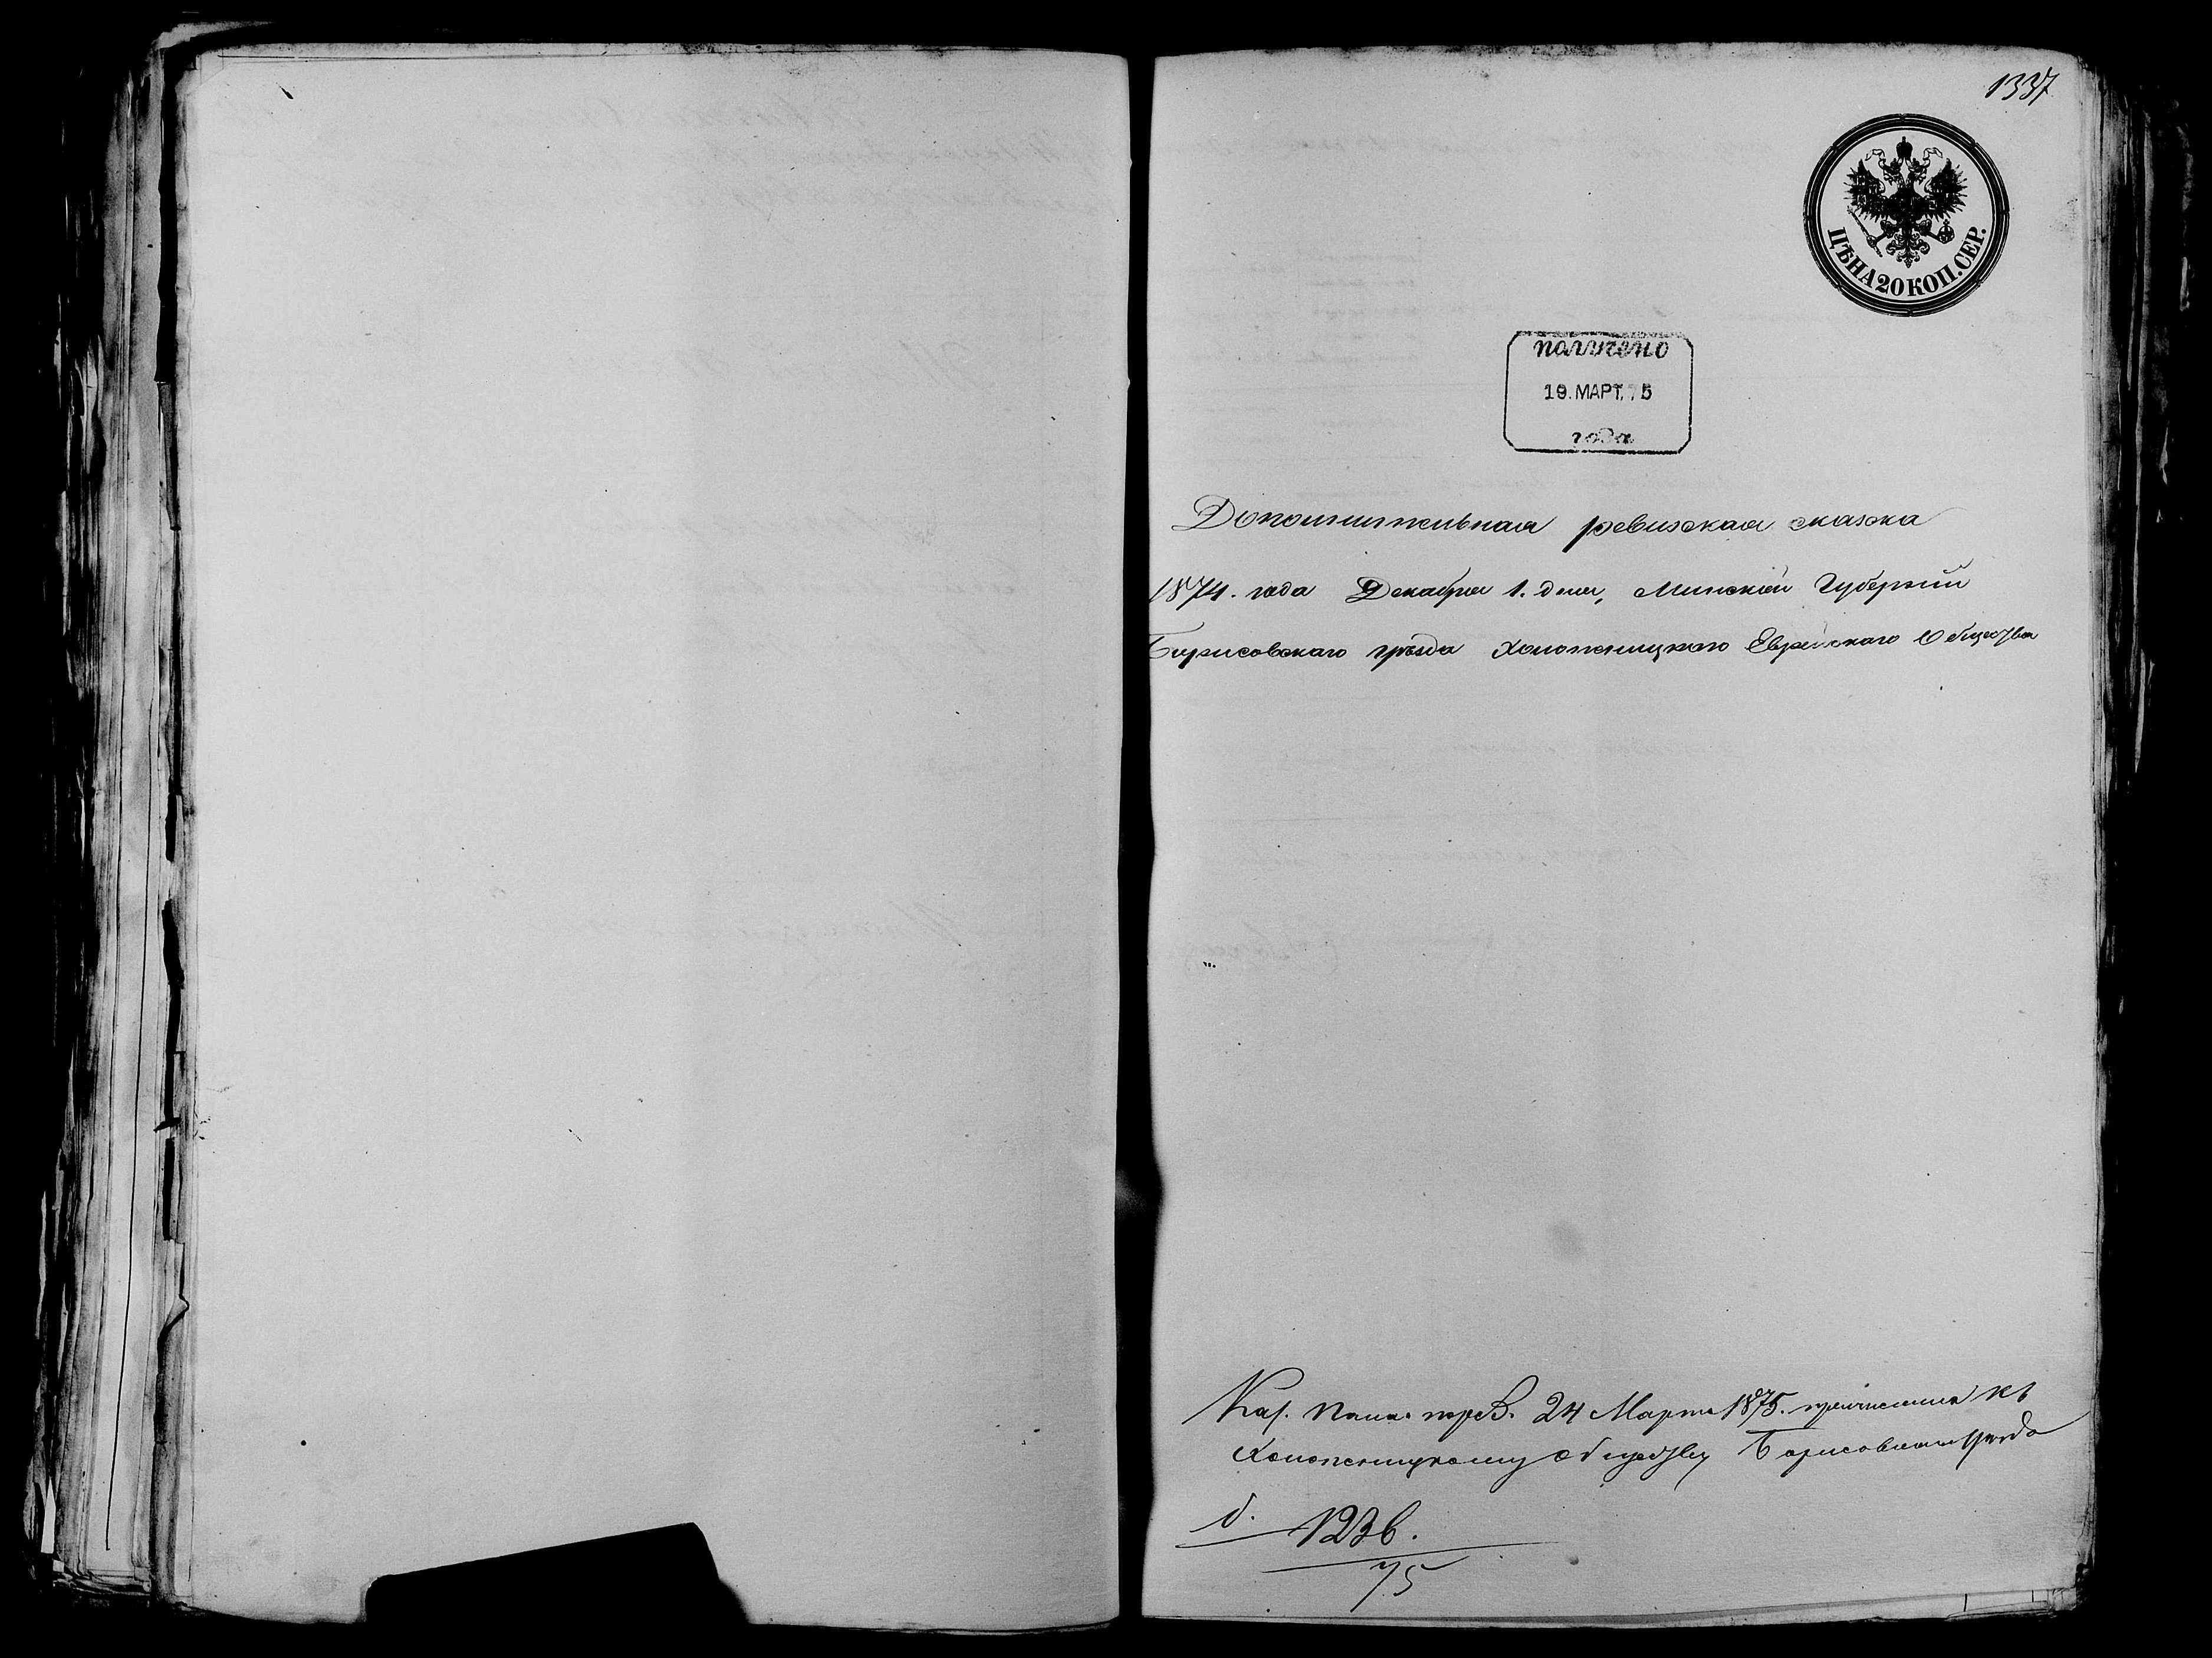 1337
ЦѢНА 20 КОП. СЕР.
получено
19. МАРТ. 75
года
Дополнительная ревизская сказка
1874. года Декабря 1. дня, Минской Губерніи
Борисовскаго уѣзда Холопеницкаго Еврейскаго Общества
Каз. Палат. 24 Марта 1875. причислены къ
Холопеницкому обществу Борисовскаго уѣзда
д. 1236.
75